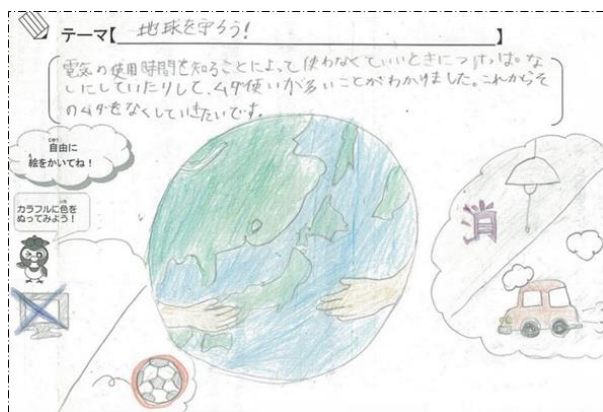 テーマ【地球を守ろう!】
電気の使用時間を知ることによって使わなくていいときにつけっぱな
しにしていたりして、ムダ使いが多いことがわかりました。これからそ
のムダをなくしていきたいです。
じゆう
自由に
え
絵をかいてね!
カラフルに色を
ぬってみよう!
消